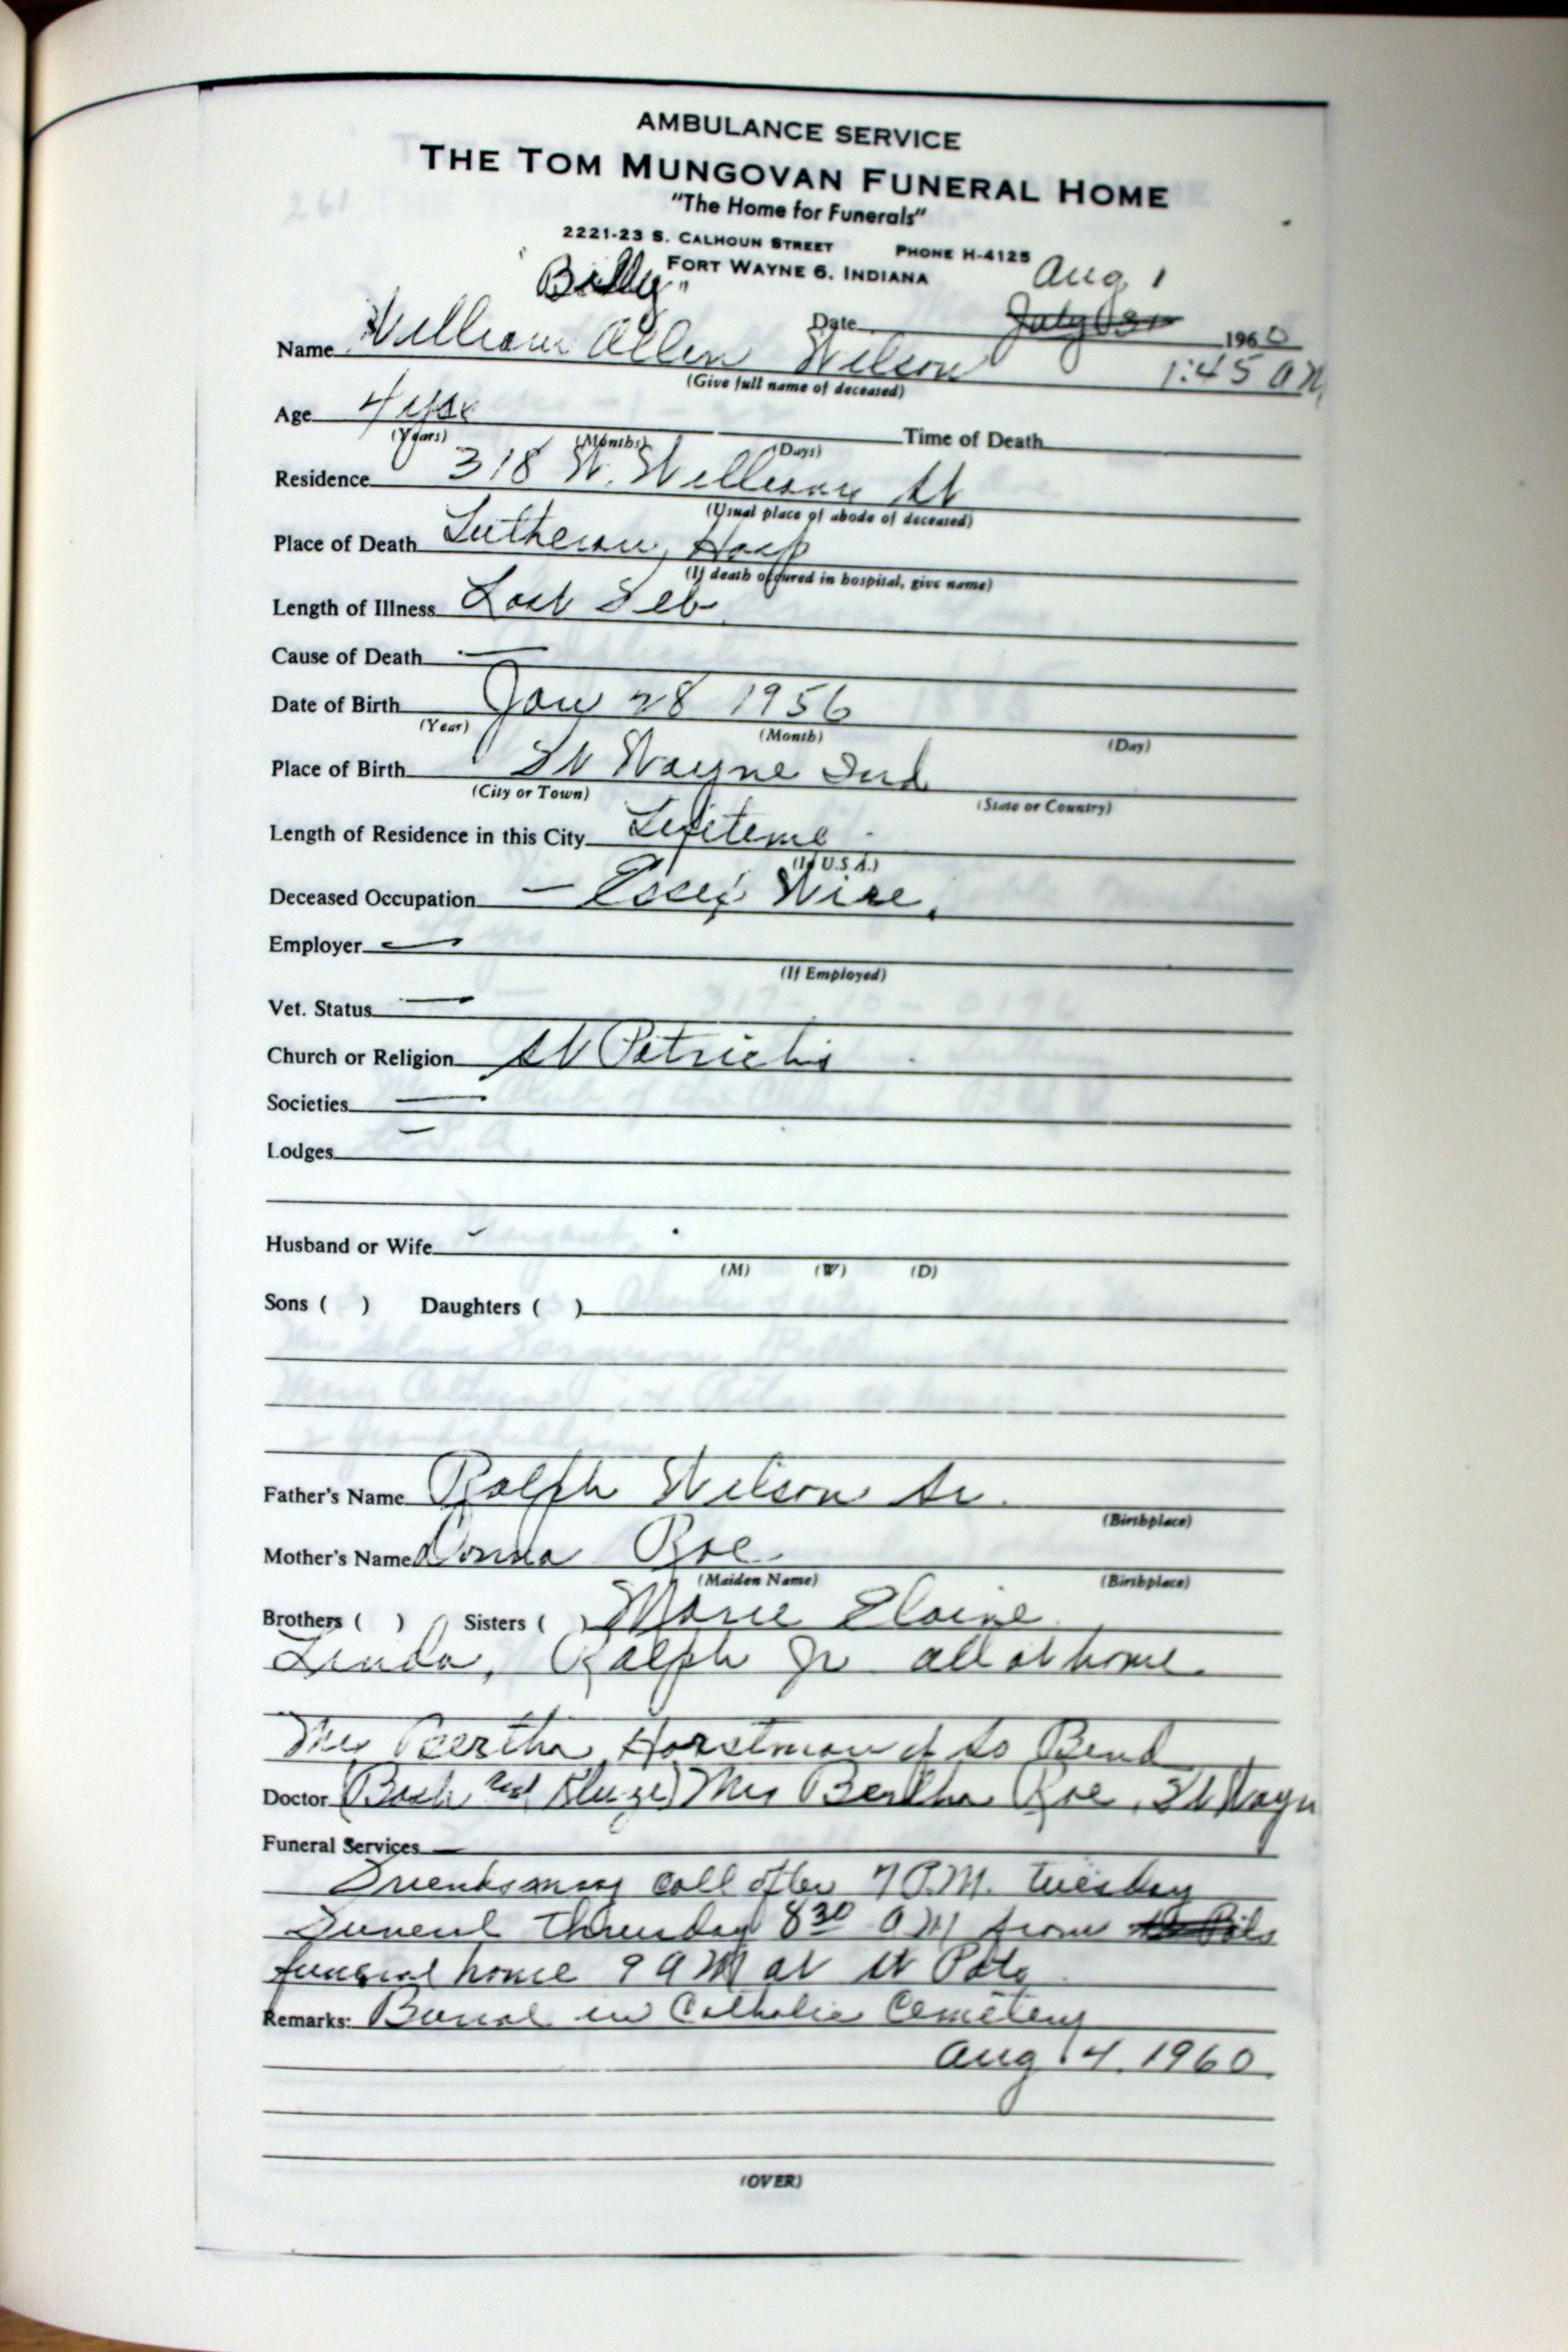 AMBULANCE SERVICE
THE TOM MUNGOVAN FUNERAL HOME
"The Home for Funerals"
2221-23 S. CALHOUN STREET PHONE H-4125
FORT WAYNE 6, INDIANA
"Billy" Aug 1
Date July 31 1960
Name William Allen Wilson 1:45 AM
(Give full name of deceased)
Age 4 yrs Time of Death
(Years) (Months) (Days)
Residence 318 W. Williams St
(Usual place of abode of deceased)
Place of Death Lutheran Hosp
(If death occured in hospital, give name)
Length of Illness Last Feb
Cause of Death —
Date of Birth Jan 28 1956
(Year) (Month) (Day)
Place of Birth Ft Wayne Ind
(City or Town) (State or Country)
Length of Residence in this City Lifetime
(If U.S.A.)
Deceased Occupation — Essex Wire
Employer —
(If Employed)
Vet. Status —
Church or Religion St Patricks
Societies —
Lodges —
Husband or Wife -
(M) (W) (D)
Sons ( ) Daughters ( )
Father's Name Ralph Wilson Sr.
(Birthplace)
Mother's Name Donna Roe
(Maiden Name) (Birthplace)
Brothers ( ) Sisters ( ) Marie Elaine
Linda, Ralph Jr all at home
Mrs Bertha Horstman of So Bend
Doctor (Bash and ) Mrs Bertha Roe, Ft Wayn
Funeral Services —
Friends may call after 7 P.M. Tuesday
Funeral Thursday 8 30 AM from
funeral home 9 AM at St Pats
Remarks: Burial in Catholic Cemetery
Aug 4, 1960
(OVER)